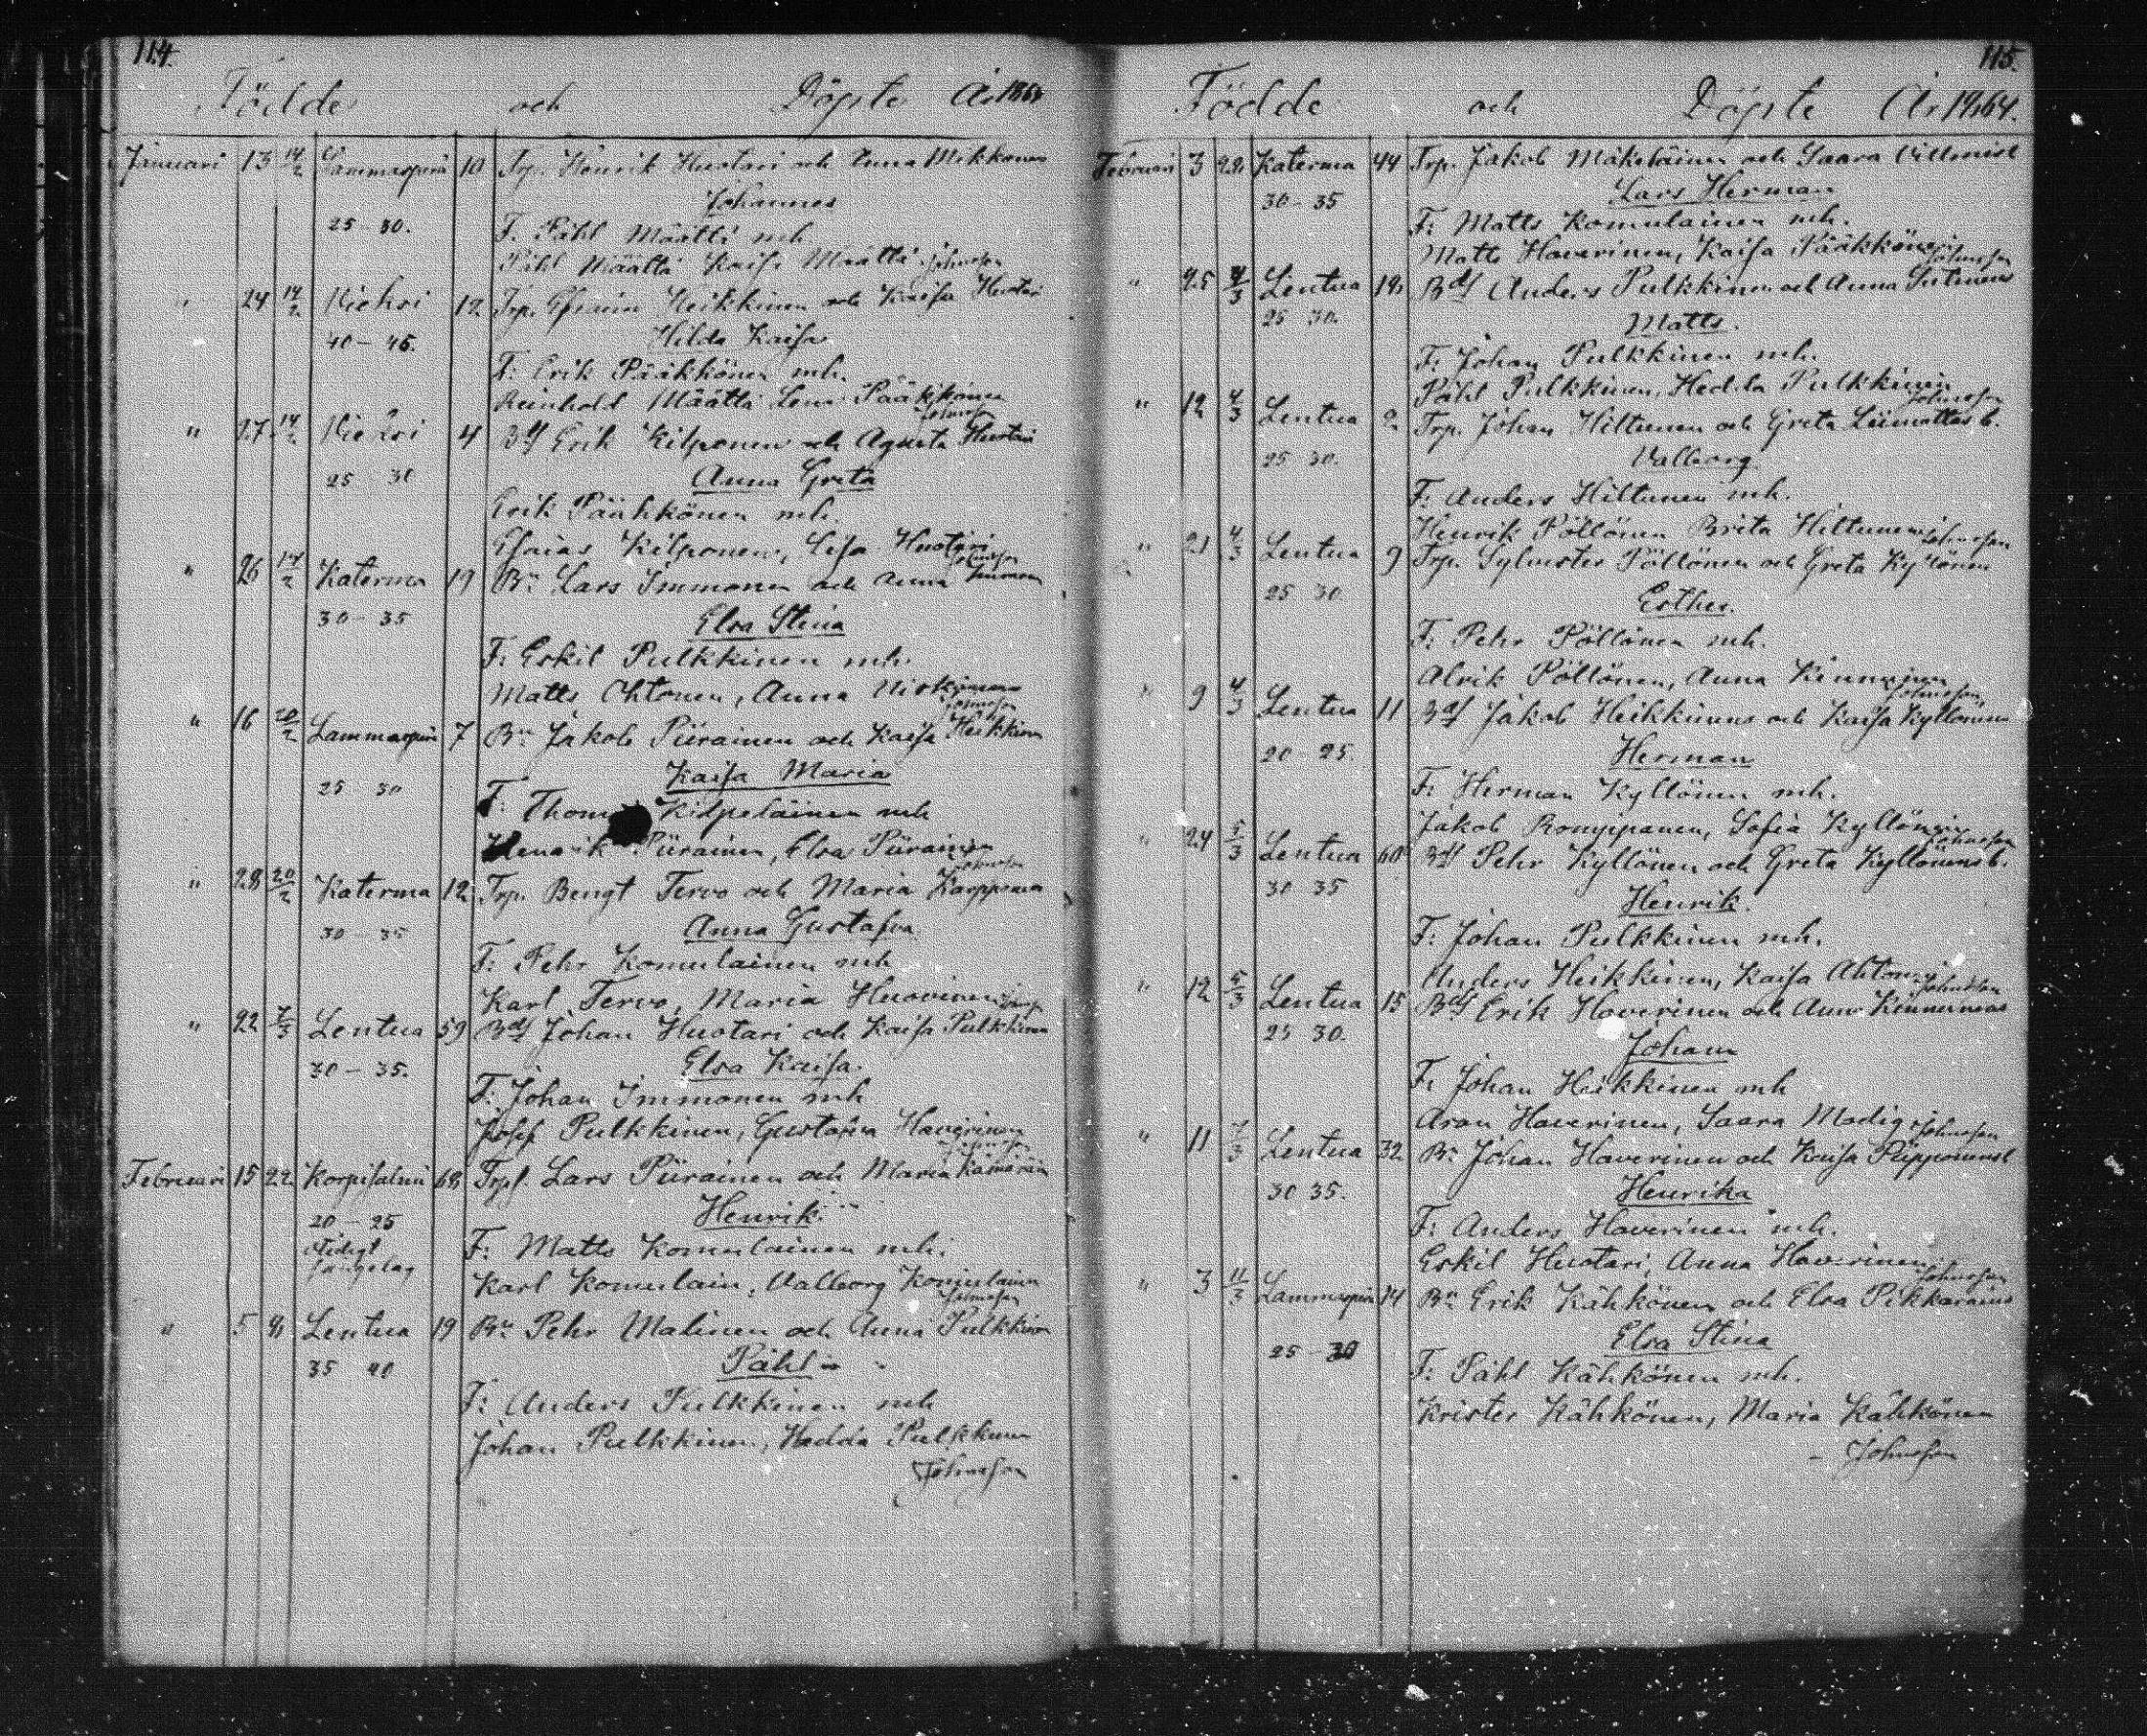 114.
Födde och Döpte År 1864
Januari 13 14/2 Lammasperä 10 Trp. Henrik Huotari och Anna Mikkonen
Johannes
25 - 30. F. Påhl Määttä mh
Påhl Määttä Kaisa Määttä Johnsson
" 24 14/2 Wieksi 12 Trp. Efraim Heikkinen och Kaisa Huotari
40 - 45. Hilda Kaisa
F: Erik Pääkkönen mh.
Reinhold Määttä Lena Pääkkönen
Johnsson
" 27 14/2 Wieksi 4 Bdf Erik Kilponen och Agusta Huotari
25 30 Anna Greta
Erik Pääkkönen mh.
Esaias Kilponen, Lisa Huotari
Johnsson
" 26 14/2 Katerma 19 Bn Lars Immonen och Anna
30 - 35 Elsa Stina
F: Eskil Pulkkinen mh.
Matts Ohtonen, Anna
Johnsson
" 16 20/2 Lammasperä 7 Bn Jakob Piirainen och Kaisa Heikkinen
25 30 Kaisa Maria
F: Thomas Kilpeläinen mh
Henrik Piirainen, Elsa Piirainen
Johnsson
" 28 20/2 Katerma 12 Trp. Bengt Tervo och Maria Karppinen
30 - 35 Anna Gustafva
F: Pehr Komulainen mh
Karl Tervo, Maria Huovinen Johnsson
" 22 7/3 Lentua 59 Bdf Johan Huotari och Kaisa Pulkkinen
30 - 35. Elsa Kaisa.
F: Johan Immonen mh
Josef Pulkkinen, Gustafva Haverinen
Johnsson
Februari 15 22 Korpisalmi 68 Trpf. Lars Piirainen och Maria Kämäräin
20 - 25 Henrik
F: Matts Komulainen mh.
Karl Komulain, Valborg Komulainen
Johnsson
" 5 8 Lentua 19 Bn Pehr Malinen och Anna Pulkkinen
35 40 Påhl
F: Anders Pulkkinen mh
Johan Pulkkinen, Hedda Pulkkinen
Johnsson
115.
Födde och Döpte År 1864.
Februari 3 28 Katerma 44 Trp. Jakob Mäkeläinen och Saara
30 - 35 Lars Herman
F: Matts Komulainen mh.
Matts Haverinen, Kaisa Pääkkönen
Johnsson
" 25 4/3 Lentua 18 Bdf Anders Pulkkinen och Anna
25 30. Matts.
F: Johan Pulkkinen mh.
Påhl Pulkkinen, Hedda Pulkkinen
Johnsson
" 12 4/3 Lentua 2 Trp. Johan Hiltunen och Greta Liimattas b.
25 30. Valborg
F: Anders Hiltunen mh.
Henrik Pöllönen Brita Hiltunen Johnsson
" 21 4/3 Lentua 9 Trp. Sylvester Pöllönen och Greta Kyllönen
25 30 Esther.
F: Pehr Pöllönen mh.
Alrik Pöllönen, Anna Kinnunen
Johnsson
" 9 4/3 Lentua 11 Bdf Jakob Heikkinens och Kaisa Kyllönens
20 - 25. Herman
F: Herman Kyllönen mh.
Jakob Romppanen, Sofia Kyllönen
Johnsson
" 24 5/3 Lentua 60 Bdf Pehr Kyllönen och Greta Kyllönens b.
30 35 Henrik.
F: Johan Pulkkinen mh.
Anders Heikkinen, Kaisa Ahtonen
Johnsson
" 12 5/3 Lentua 15 Bdf Erik Haverinen och Anna Kinnunens
25 30. Johan
F: Johan Heikkinen mh
Aron Haverinen, Saara Madig Johnsson
" 11 7/3 Lentua 32 Bn Johan Haverinen och Kaisa Piipponens b
30 35. Henrika
F: Anders Haverinen mh.
Eskil Huotari, Anna Haverinen
Johnsson
" 3 11/3 Lammasperä 14 Bn Erik Kähkönen och Elsa Pikkarains
25 - 30 Elsa Stina
F: Påhl Kähkönen mh.
Krister Kähkönen, Maria Kähkönen
Johnsson